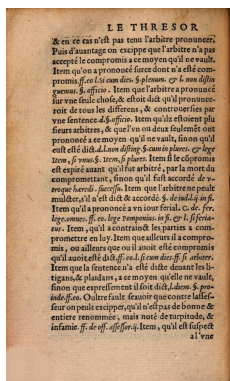 LE THRESOR
& en ce cas n'est pas tenu l'arbitre pronuncer.
Puis d'auantage on excippe que l'arbitre n'a pas
accepté le compromis a ce moyen qu'il ne vault.
Item qu'on a prononcé surce dont n'a esté com-
promis. ff. eo l. si cum dies. §. plenum. & l. non distin
guemus. §. officio. Item que l'arbitre a pronuncé
sur vne seule chose, & estoit dict qu'il prononce-
roit de tous les differens, & controuersies par
vne sentence d. §. officio. Item qu'ilz estoient plu
sieurs arbitres, & que l'vn ou deux seulemēt ont
prononcé a ce moyen qu'il ne vault, sinon qu'il
eust esté dict. d. l. non disting. §. cum in plures. & lege
Item, si vnus. §. Item, si plures. Item si le cōpromis
est expiré auant qu'il fut arbitré, par la mort du
compromettant, sinon qu'il fust accordé de v-
troque hæredi. successu. Item que l'arbitre ne peult
mulcter, s'il n'est dict & accordé. §. de iud. lij in fi.
Item qu'il a prononcé a vn iour ferial. c. de. fer.
lege. omnes. ff. eo. lege pomponius. in fi. & l. si feria-
tus. Item, qu'il a contrainct les parties a com-
promettre en loy. Item que ailleurs il a compro-
mis, ou ailleurs que ou il auoit esté compromis
qu'il auoit, esté dict. ff. eo. l. si cum dies. ff. si arbiter.
Item que la sentence n'a esté dicte deuant les li-
tigans, & plaidans, a ce moyen qu'elle ne vaule,
sinon que expressement il soit dict, l. dicm. §. pro-
inde. ff. eo. Oultre fault sçauoir que contre lasses-
seur on peult excipper, qu'il n'est pas de bonne &
entiere renommée, mais noté de turpitude, &
infamie. ff. de off. assessor. ij. Item, qu'il est suspect
a l'vne